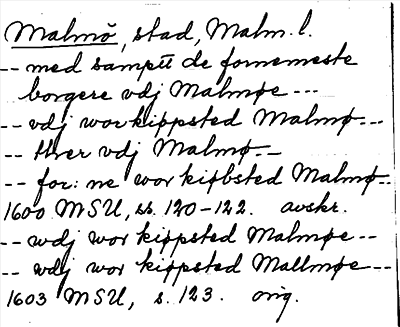 Malmö, stad, Malm. l.
-- med samptt de fornemeste
borgere vdj Malmøe ---
-- vdj wor kippsted Malmø---
-- Hver vdj Malmø--
-- for: ne wor kiøbsted Malmø--
1600 MSU, ss. 120-122. avskr.
-- wdj wor kiøpsted Malmøe --
-- wdj wor kiøpsted Mallmøe --
1603 MSU, s. 123. orig.